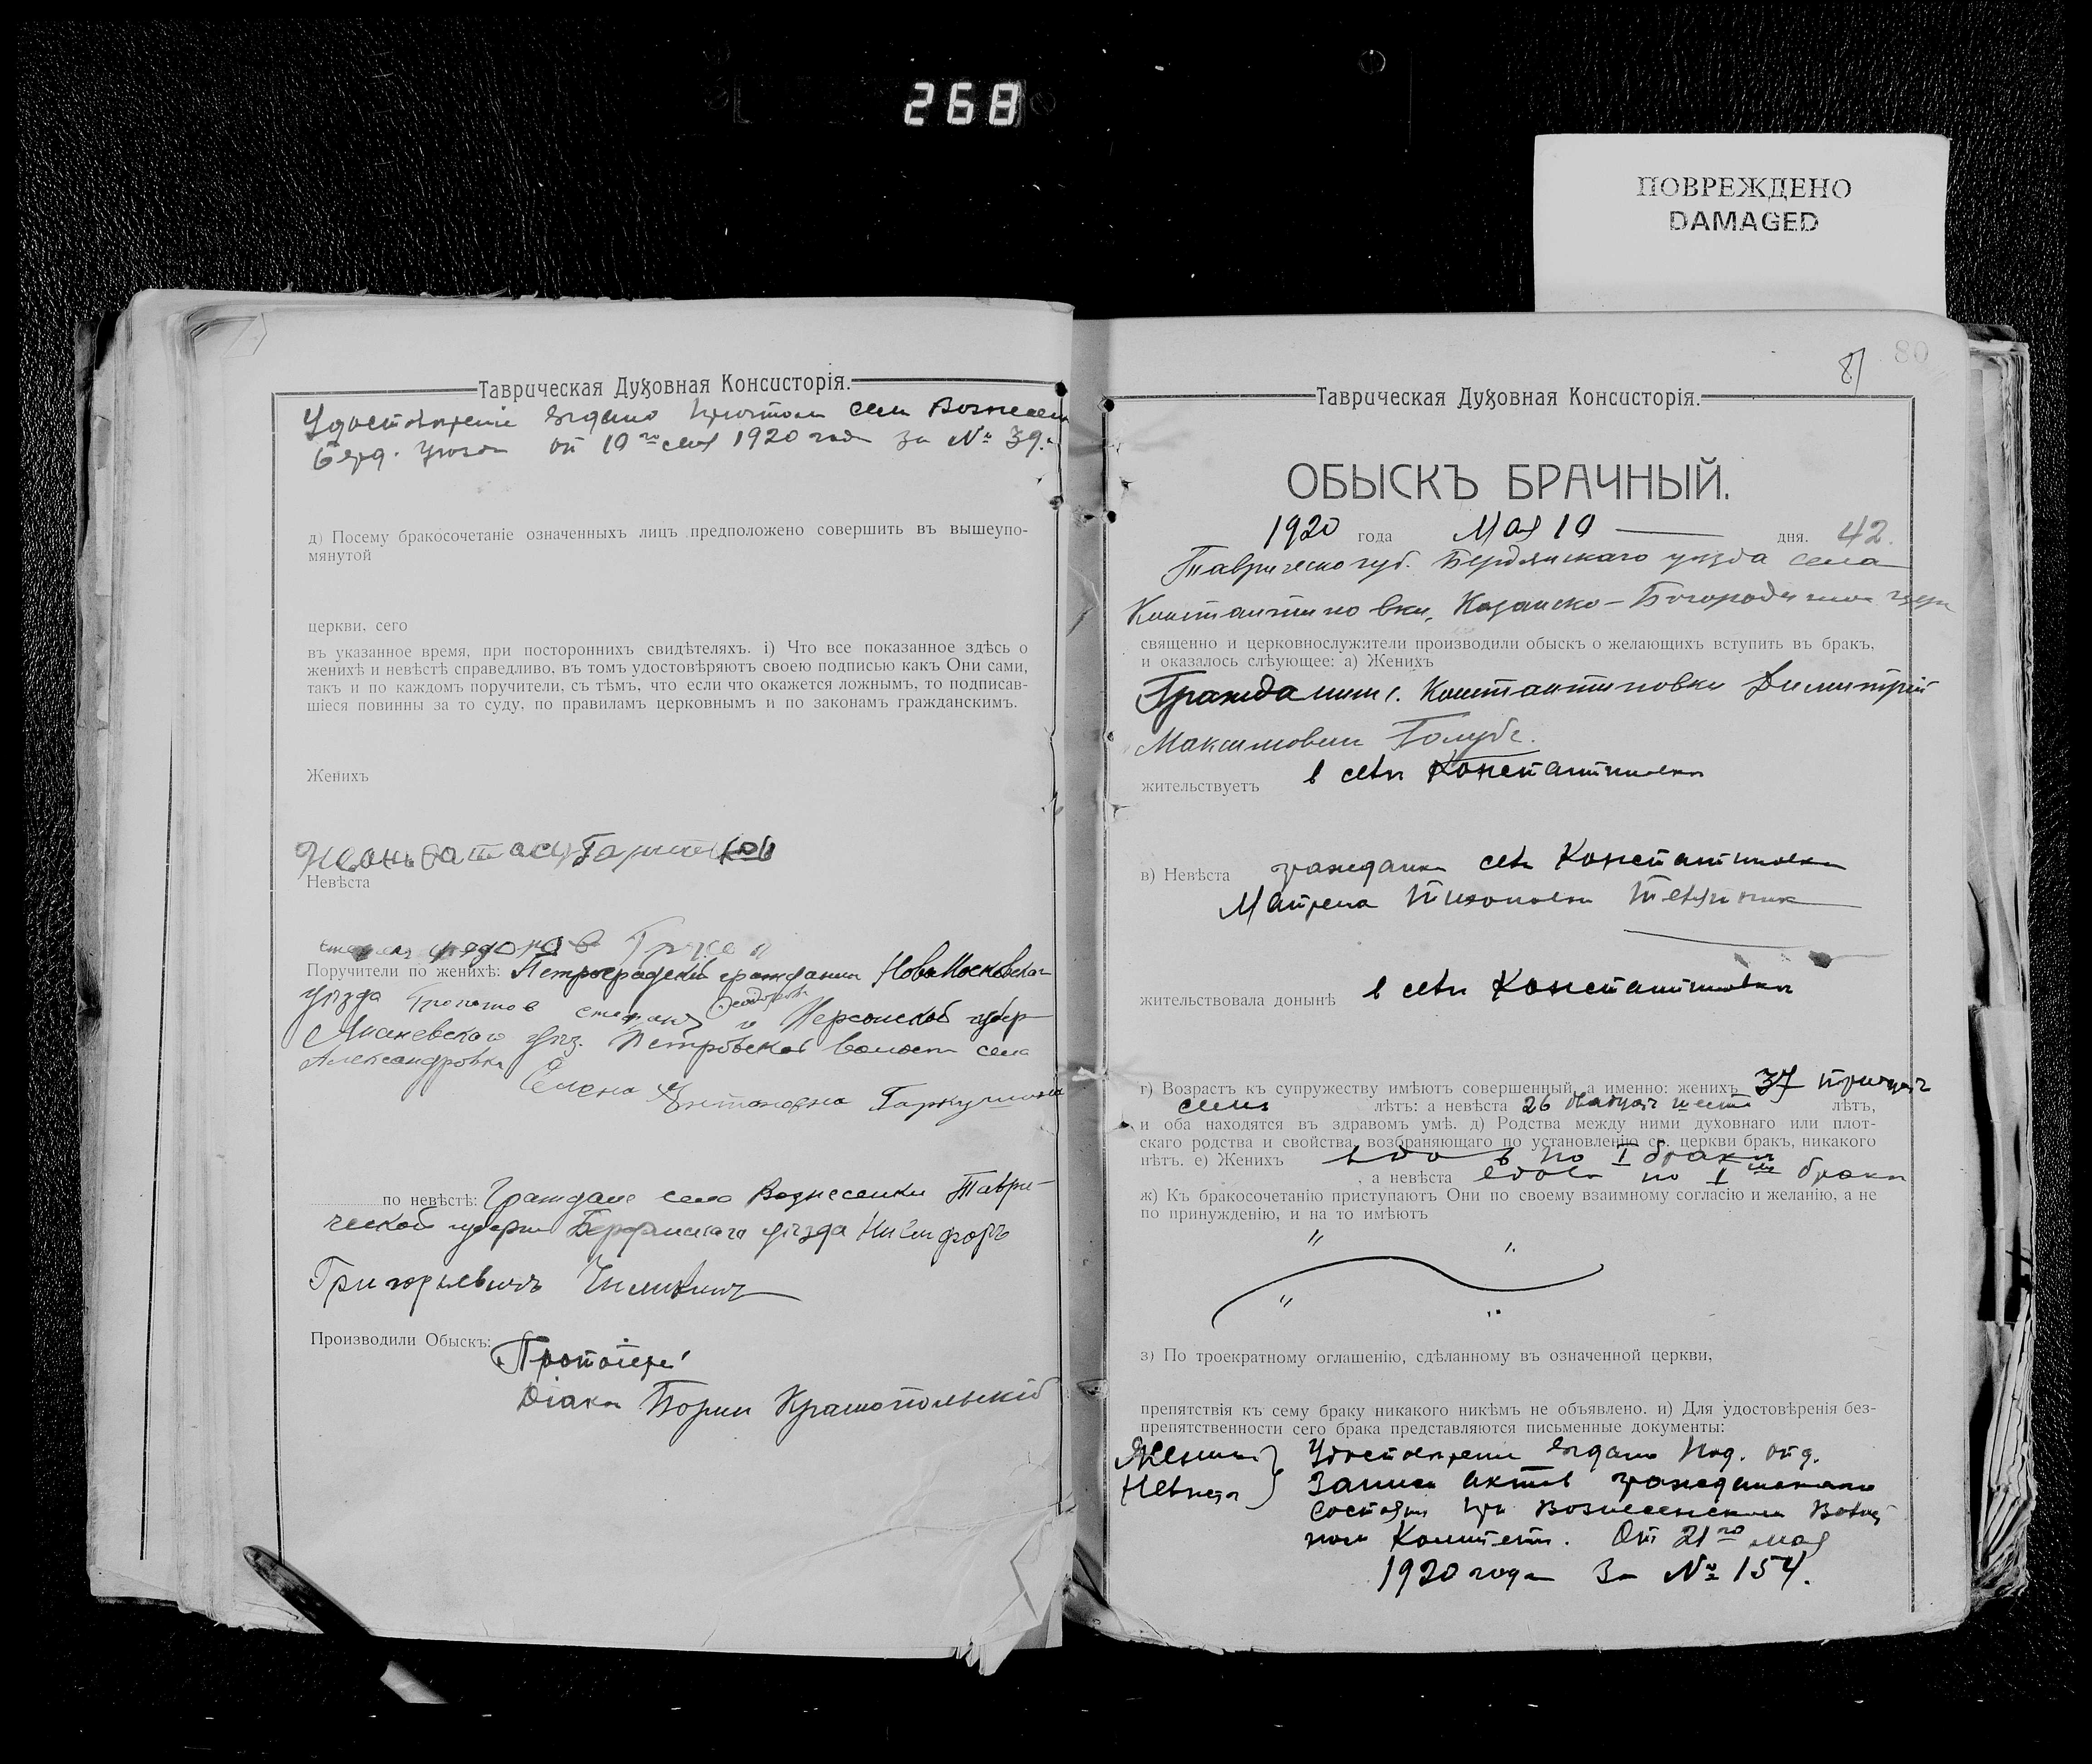 268
ПОВРЕЖДЕНО
DAMAGED
Таврическая Духовная Консисторія.
Удостовѣреніе выдано села
Берд. уѣзда от 10го 1920 года за № 39.
д) Посему бракосочетаніе означенныхъ лицъ предположено совершить въ вышеупо-
мянутой
церкви, сего
въ указанное время, при постороннихъ свидѣтеляхъ. і) Что все показанное здѣсь о
женихѣ и невѣстѣ справедливо, въ томъ удостовѣряютъ своею подписью какъ Они сами,
такъ и по каждомъ поручители, съ тѣмъ, что если что окажется ложнымъ, то подписав-
шіеся повинны за то суду, по правиламъ церковнымъ и по законамъ гражданскимъ.
Женихъ
Невѣста
Поручители по женихѣ: гражданин НовоМосковскаго
уѣзда и Херсонской губер
уѣз. Петровской волости села
Александровки
Елена Антоновна
по невѣстѣ: Граждане села Вознесенки Таври-
ческой губерни Бердянскаго уѣзда Никифоръ
Григорьевичъ
Производили Обыскъ:
Протоіерей
Діакон Борис Краснопольскій
81 80
Таврическая Духовная Консисторія.
ОБЫСКЪ БРАЧНЫЙ.
1920 года Мая 10 дня. 42.
Таврической губ. Бердянскаго уѣзда села
Константиновки, Казанско-Богородичной церк
священно и церковнослужители производили обыскъ о желающихъ вступить въ бракъ,
и оказалось слѣующее: а) Женихъ
Гражданин с. Константиновки Димитрій
Максимович Голубъ.
жительствуетъ в селѣ Константиновки
в) Невѣста гражданка села Константиновки
Матрена Тихоновна
жительствовала донынѣ в селѣ Константиновки
г) Возрастъ къ супружеству имѣютъ совершенный, а именно: женихъ 37 тридцать
семь лѣтъ: а невѣста 26 двадцать шесть лѣтъ,
и оба находятся въ здравомъ умѣ. д) Родства между ними духовнаго или плот-
скаго родства и свойства, возбраняющаго по установленію св. церкви бракъ, никакого
нѣтъ. е) Женихъ вдов по I браки
, а невѣста вдова по I браки
ж) Къ бракосочетанію приступаютъ Они по своему взаимному согласію и желанію, а не
по принужденію, и на то имѣютъ
з) По троекратному оглашенію, сдѣланному въ означенной церкви,
препятствія къ сему браку никакого никѣмъ не объявлено. и) Для удостовѣренія без-
препятственности сего брака представляются письменные документы:
Жених Удостовѣрение выдано Под. отд.
Невѣста Записи актов гражданскаго
состоян при Вознесенском Волост
ном Комитетѣ. От 21го мая
1920 года за № 154.